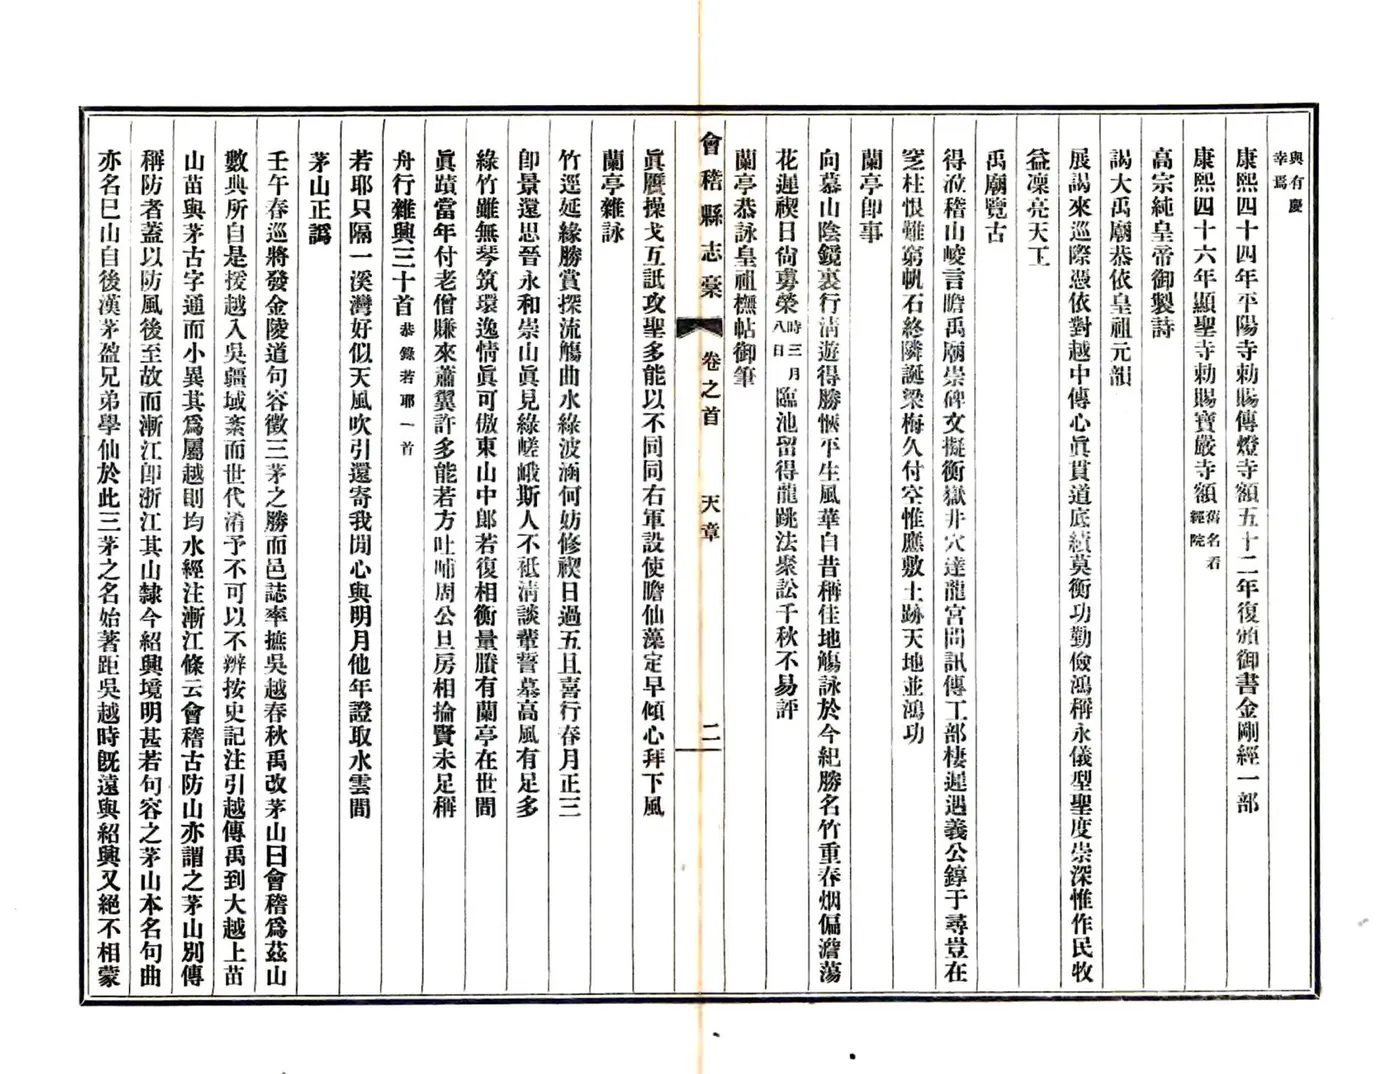 與有慶
幸焉
康熙四十四年平陽寺勅賜傳燈寺額五十二年復頒御書金剛經一部
康熙四十六年顯聖寺勅賜寶嚴寺額舊名看
經院
高宗純皇帝御製詩
謁大禹廟恭依皇祖元韻
展謁來巡際憑依對越中傳心眞貫道底績莫衡功勤儉鴻稱永儀型聖度崇深惟作民牧
益凜亮天工
禹廟覽古
得泣稽山峻言瞻禹廟崇碑文擬衡嶽井穴達龍宮問訊傳工部棲遲遇義公錞于尋豈在
窆柱恨難窮帆石終隣誕梁梅久付空惟應敷土跡天地並鴻功
蘭亭卽事
向慕山陰鏡裏行淸遊得勝愜平生風華自昔稱佳地觴詠於今紀勝名竹重春烟偏澹蕩
花遲禊日尙勇榮時三月
八日臨池留得龍跳法聚訟千秋不易評
蘭亭恭詠皇祖橅帖御筆
會稽縣志稾 卷之首 天章 二
眞贋操戈互詆攻聖多能以不同同右軍設使瞻仙藻定早傾心拜下風
蘭亭雜詠
竹逕延緣勝賞探流觴曲水綠波涵何妨修禊日過五且喜行春月正三
卽景還思晉永和崇山眞見綠嵯峨斯人不祗淸談輩誓墓高風有足多
綠竹雖無琴筑環逸情眞可傲東山中郞若復相衡量賸有蘭亭在世間
眞蹟當年付老僧賺來蕭翼許多能若方吐哺周公旦房相掄賢未足稱
舟行雜興三十首恭錄若耶一首
若耶只隔一溪灣好似天風吹引還寄我閒心與明月他年證取水雲間
茅山正譌
壬午春巡將發金陵道句容徵三茅之勝而邑誌率摭吳越春秋禹改茅山曰會稽爲茲山
數典所自是援越入吳疆域紊而世代淆予不可以不辨按史記注引越傳禹到大越上苗
山苗與茅古字通而小異其爲屬越則均水經注漸江條云會稽古防山亦謂之茅山別傳
稱防者蓋以防風後至故而漸江卽浙江其山隸今紹興境明甚若句容之茅山本名句曲
亦名已山自後漢茅盈兄弟學仙於此三茅之名始著距吳越時旣遠與紹興又絕不相蒙